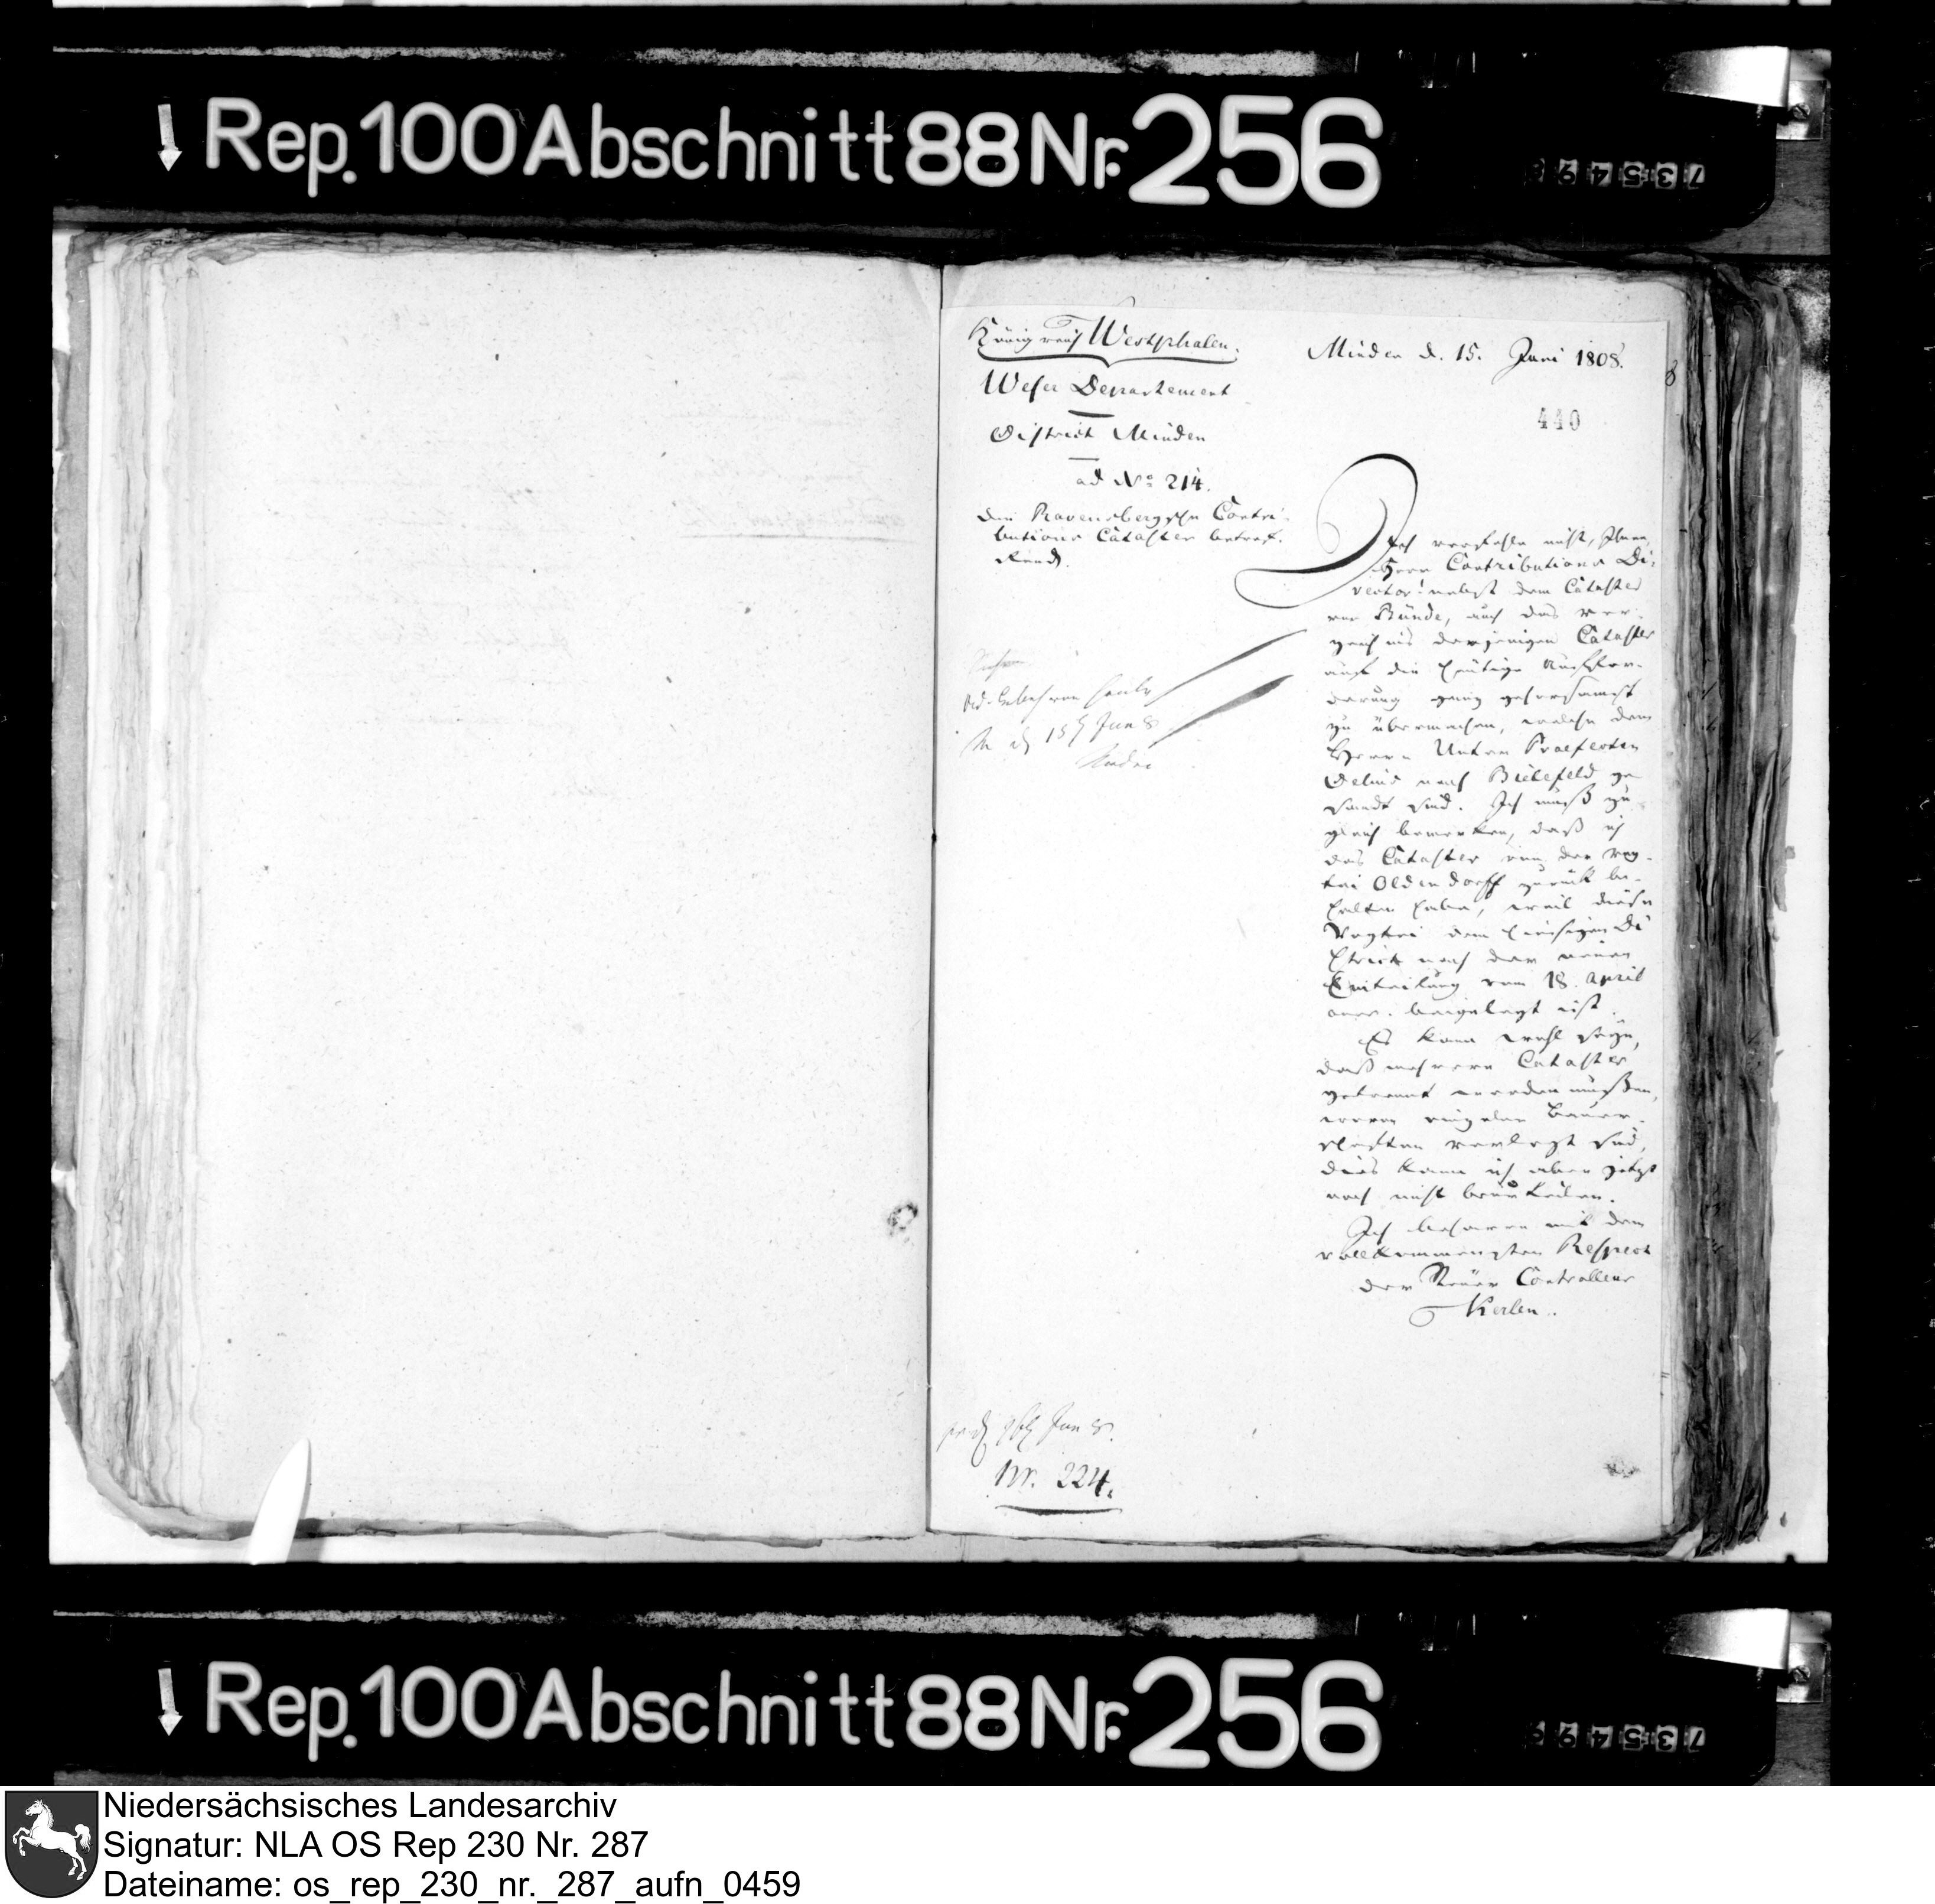 Rep. 100 Abschnitt 88 Nr. 256
Königreich Westphalen.
Weser Departement
District Minden
ad No 214.
den Ravensbergschen Contri-
butions Cataster betref-
fend.
Minden d. 15. Juni 1808.
440
Ich verfehle nicht, Ihnen,
Herr Contributions Di-
rector! nebst dem Cataster
von Bünde, auch das Ver-
zeichnis derjenigen Cataster
auf die heutige Auffor-
derung ganz gehorsamst
zu übermachen, welche dem
Herrn Unter Praefecten
Delius nach Bielefeld ge-
sandt sind. Ich muß zu-
gleich bemerken, daß ich
das Cataster von der Vog-
tei Oldendorff zurück be-
halten habe, weil diese
Vogtei dem hiesigen Di-
strict nach der neuen
Einteilung vom 18. April
beigelegt ist.
Es kann wohl seyn,
daß mehrere Cataster
getrennt werden müßen,
wovon einzelne Bauer-
schaften verlegt sind,
dies kann ich aber jetzt
noch nicht beurteilen.
Ich beharre mit dem
vollkommensten Respect
der Steuer Controlleur
Kerlen.
Nr. 224.
Rep. 100 Abschnitt 88 Nr. 256
Niedersächsisches Landesarchiv
Signatur: NLA OS Rep 230 Nr. 287
Dateiname: os_rep_230_nr._287_aufn_0459